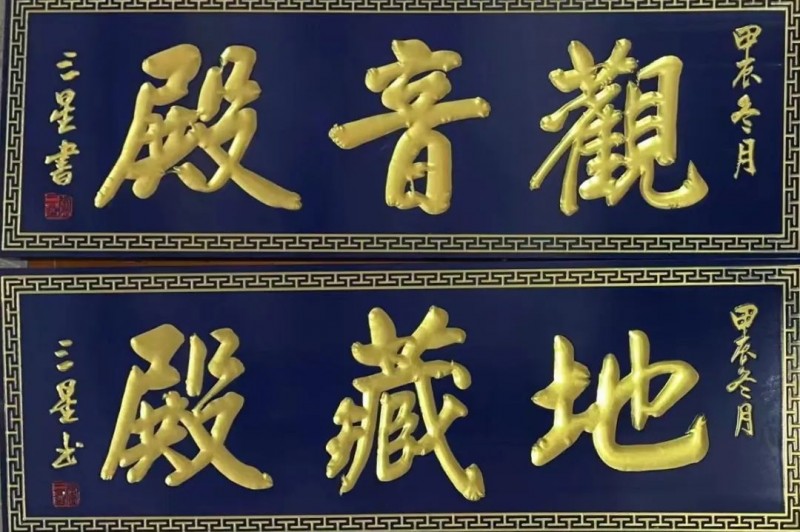 甲辰冬月
觀音殿
三星書
甲辰冬月
地藏殿
三星书